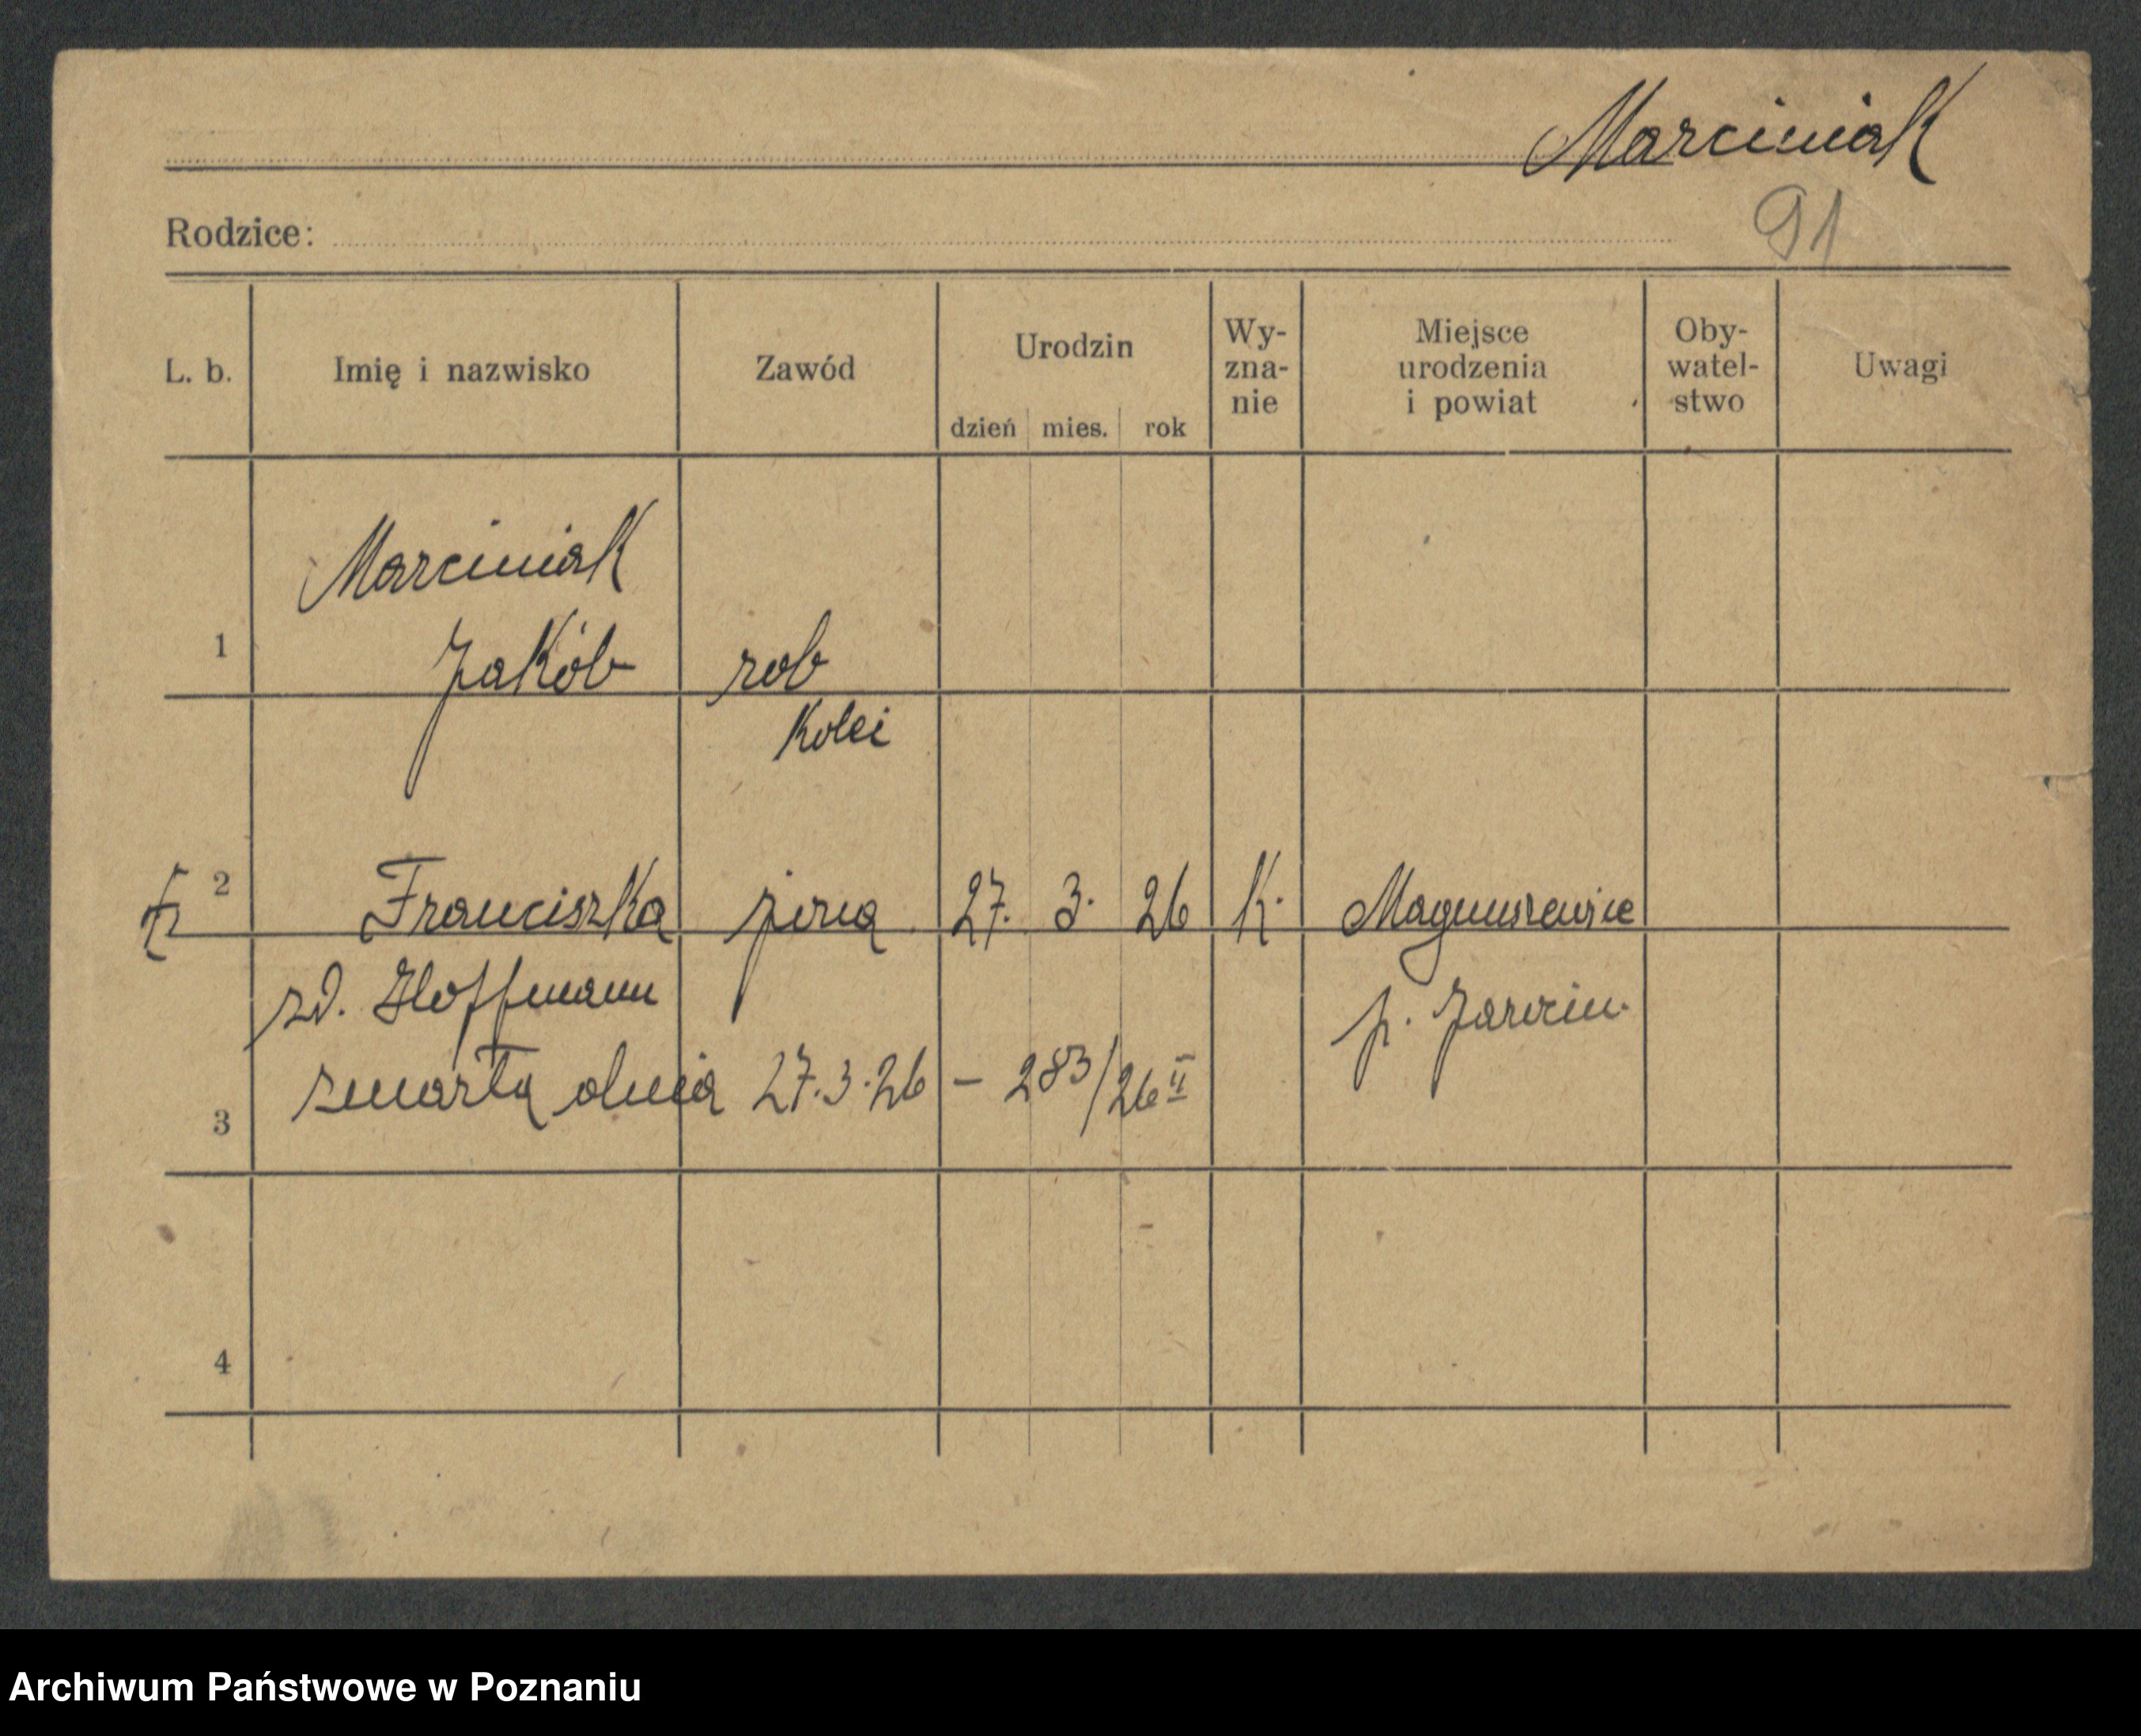 Marciniak
Rodzice:
91
L. b.
Imię i nazwisko
Zawód
Urodzin
dzień mies. rok
Wy-
zna-
nie
Miejsce
urodzenia
i powiat
Oby-
watel-
stwo
Uwagi
Marciniak
1 Jakób rob
Kolei
2 Franciszka żona 27. 3. 26 K. Magnuszewice
zd. Hoffmann p. Jarocin.
3 zmarła dnia 27.3.26 - 283/26 II
4
Archiwum Państwowe w Poznaniu